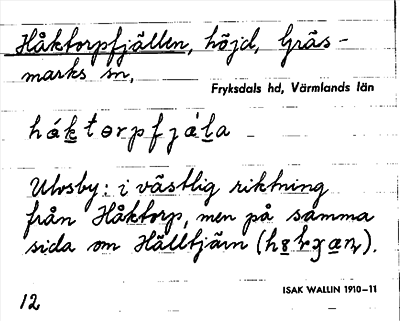 Håktorpfjällen, höjd, Gräs-
marks sn,
Fryksdals hd, Värmlands län
Utvsby: i västlig riktning
från Håktorp, men på samma
sida om Hälltjärn
ISAK WALLIN 1910–11
12